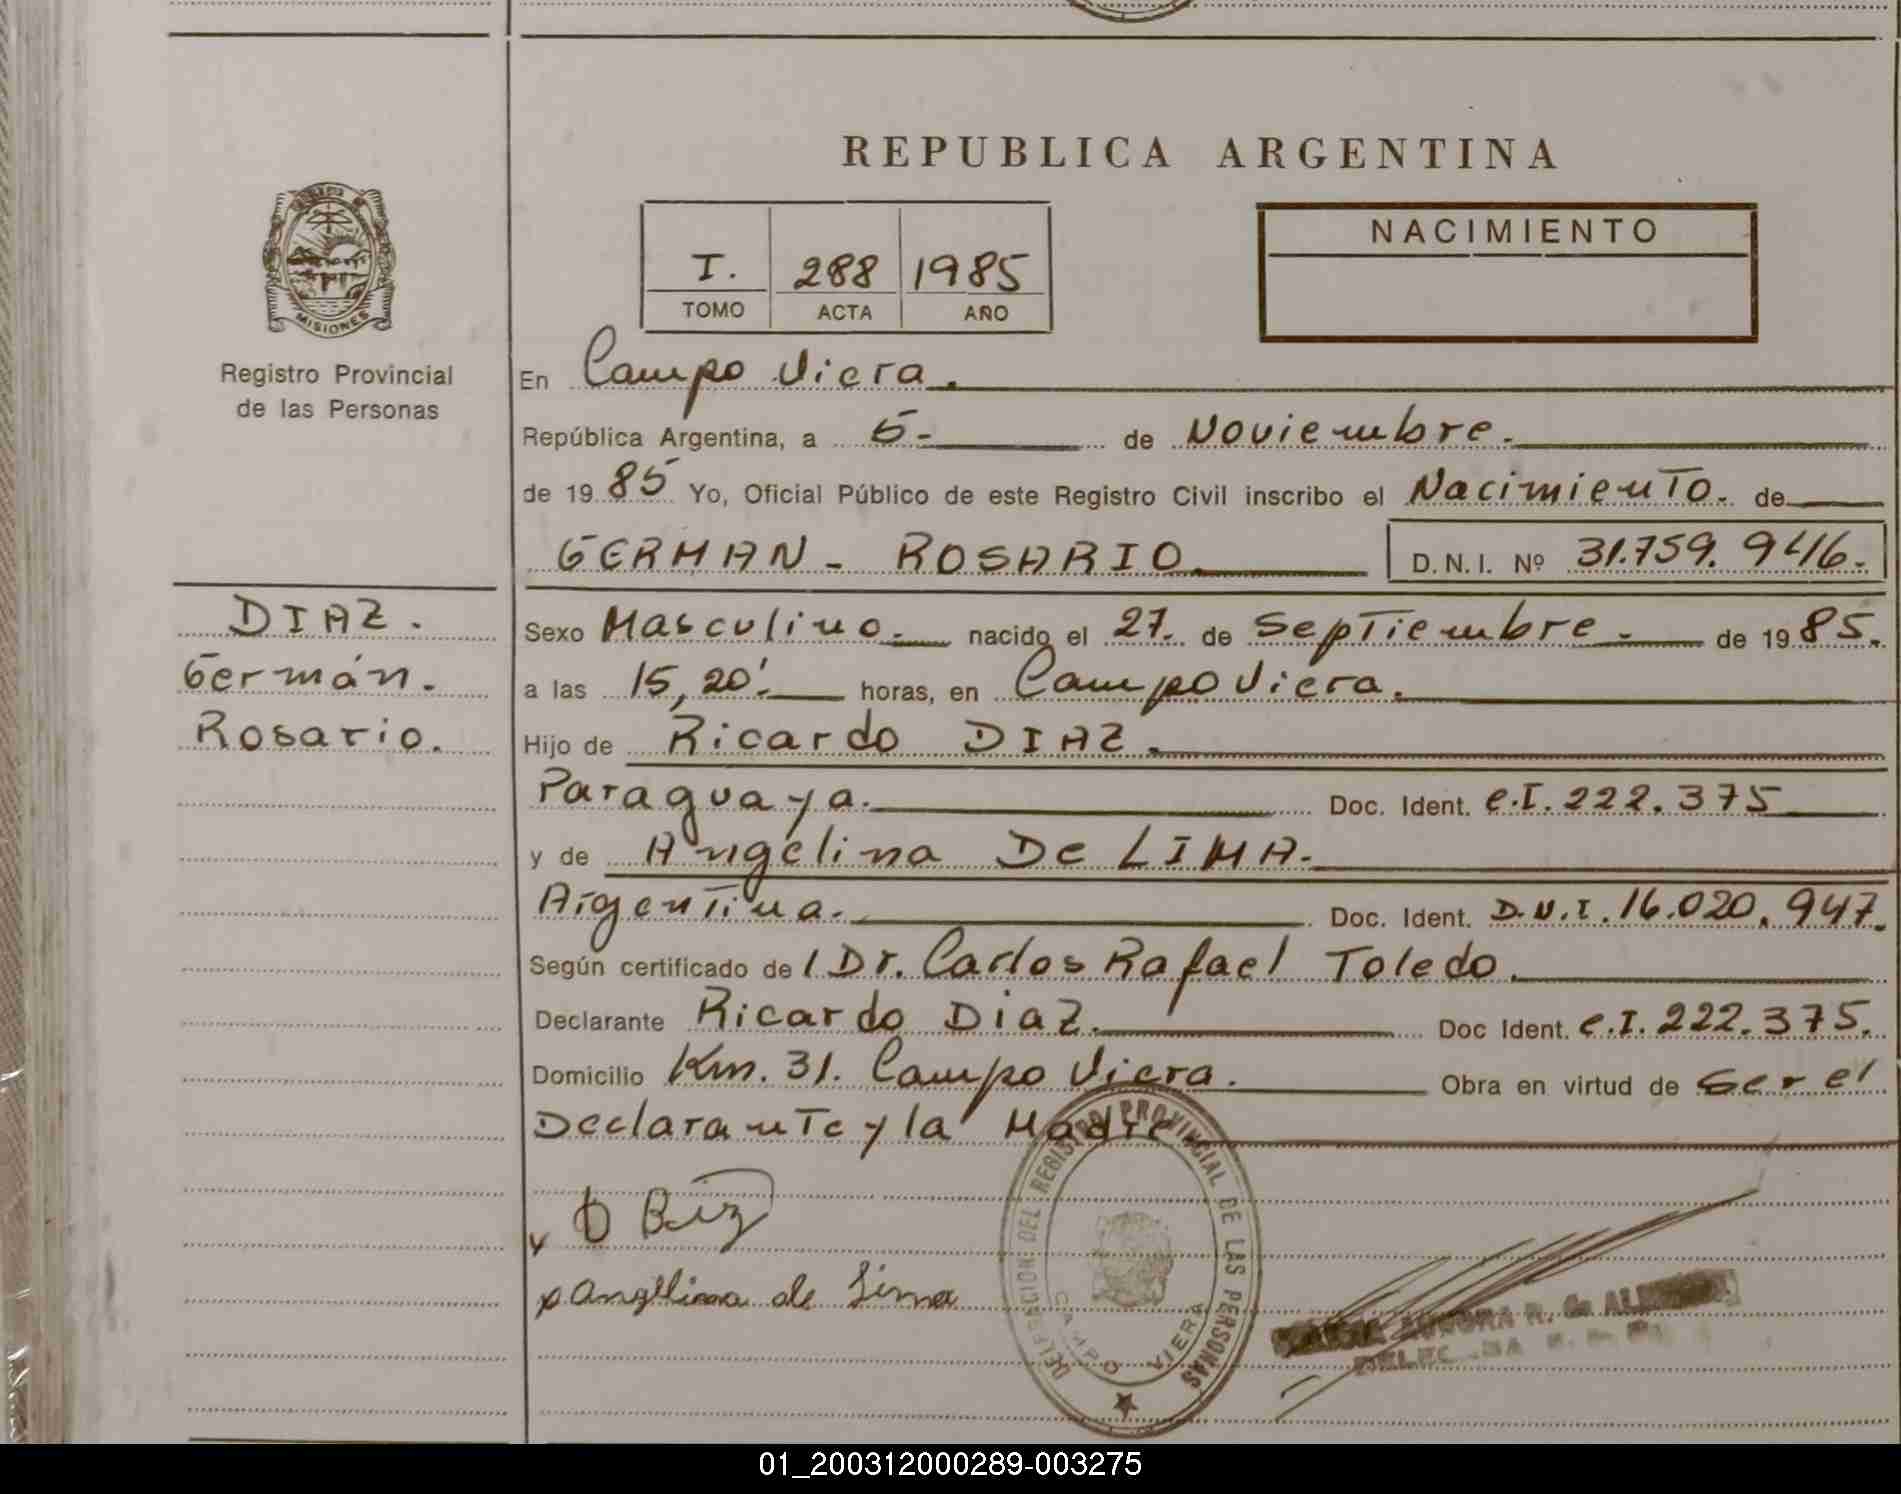 REPUBLICA ARGENTINA
I. 288 1985
TOMO ACTA AÑO
NACIMIENTO
MISIONES
Registro Provincial
de las Personas
En Campo Viera.
República Argentina, a 5- de Noviembre.
de 1985 Yo, Oficial Público de este Registro Civil inscribo el Nacimiento. de
GERMAN - ROSARIO. D. N. I. Nº 31.759.946.
DIAZ.
Germán.
Rosario.
Sexo Masculino. nacido el 27. de Septiembre. de 1985.
a las 15,20'. horas, en Campo Viera.
Hijo de Ricardo DIAZ.
Paraguaya. Doc. Ident. C.I. 222.375
y de Angelina De LIMA.
Argentina. Doc. Ident. D.N.I. 16.020.947.
Según certificado de l Dr. Carlos Rafael Toledo.
Declarante Ricardo Diaz. Doc Ident. C.I. 222.375.
Domicilio Km. 31. Campo Viera. Obra en virtud de Ser el
Declarante y la Madre
Angelina de Lima
DELEGACION DEL REGISTRO PROVINCIAL DE LAS PERSONAS
CAMPO VIERA
AURORA R. de
01_200312000289-003275